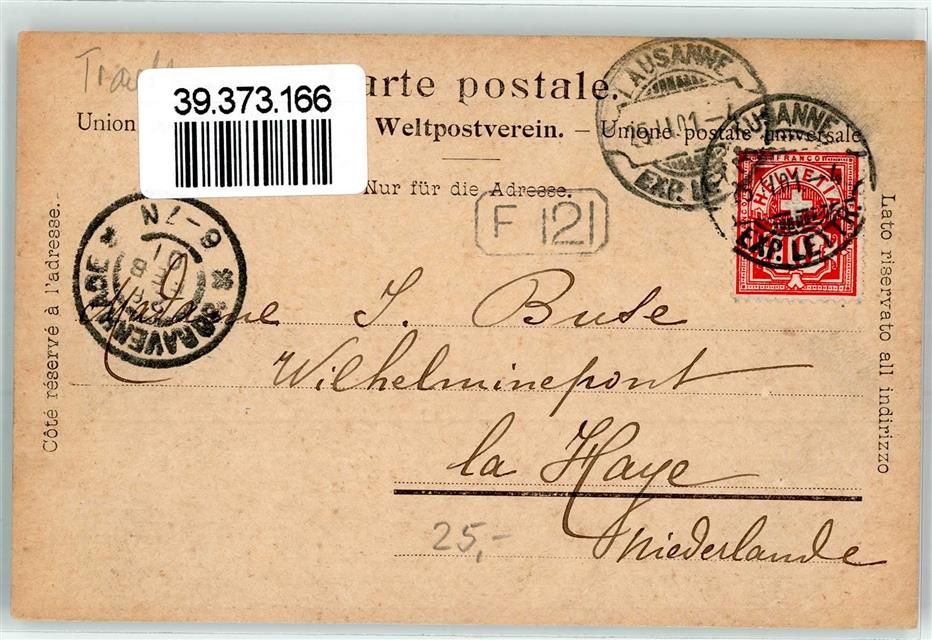 39.373.166
arte postale.
Union Weltpostverein. — Unione postale universale
Nur für die Adresse.
Côté réservé à l'adresse.
Lato riservato all indirizzo
LAUSANNE
EXP. LE
LAUSANNE
EXP. LETTR.
FRANCO
HELVETIA
10
F 121
'SGRAVENHAGE
6-7N
FEB
01
Madame J. Buse
Wilhelminepont
la Haye
Niederlande
25,-